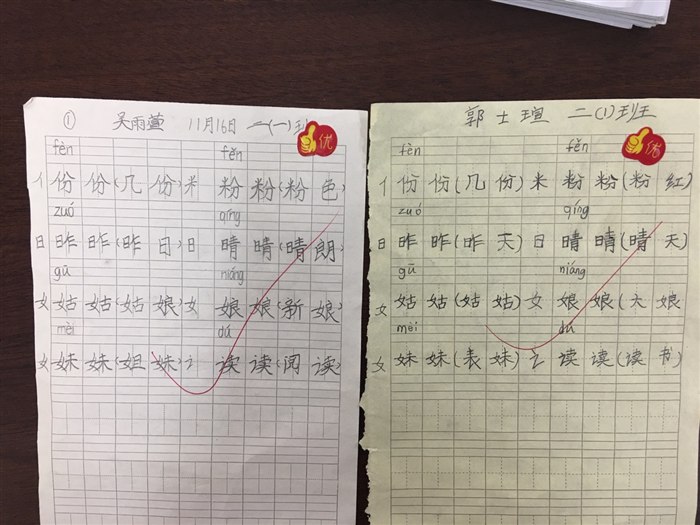 ① 吴雨萱 11月16日 二(一)班
优
fèn fěn
亻份份(几份)米粉粉(粉色)
zuó qíng
日昨昨(昨日)日晴晴(晴朗)
gū niáng
女姑姑(姑娘)女娘娘(新娘)
mèi dú
女妹妹(姐妹)讠读读(阅读)
郭士瑄 二(1)班
优
fèn fěn
亻份份(几份)米粉粉(粉红)
zuó qíng
日昨昨(昨天)日晴晴(晴天)
gū niáng
女姑姑(姑姑)女娘娘(大娘
mèi dú
女妹妹(表妹)讠读读(读书)